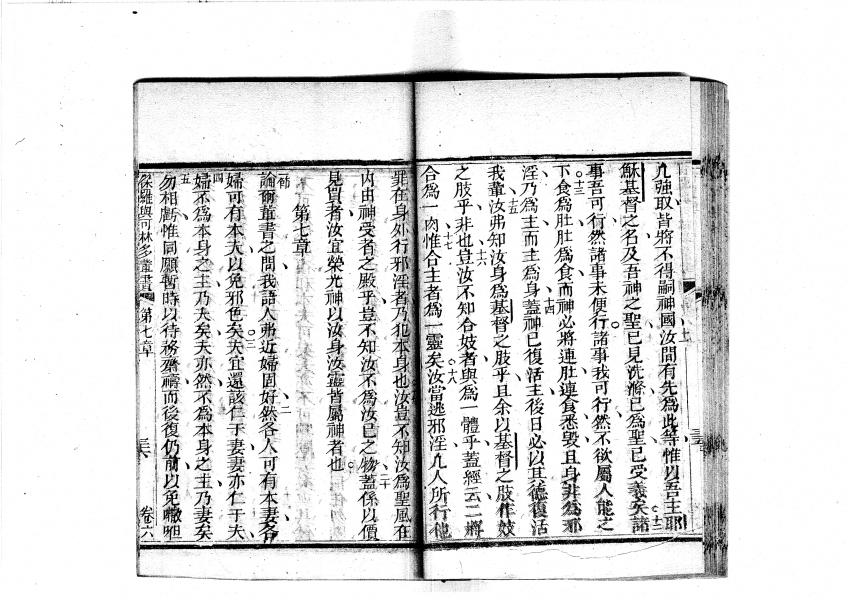 凢強取皆將不得嗣神國汝間有先為此等惟以吾主耶
穌基督之名及吾神之聖已見洗滌已為聖已受義矣諸
十二
事吾可行然諸事未便行諸事我可行然不欲屬人能之
十三
下食為肚肚為食而神必將連肚連食悉毀且身非為邪
淫乃為主而主為身蓋神已復活主後日必以其德復活
十四
我輩汝弗知汝身為基督之肢乎且余以基督之肢作妓
十五
之肢乎非也豈汝不知合妓者與為一體乎蓋經云二將
十六
合為一肉惟合主者為一靈矣汝當逃邪淫凢人所行他
十七
十八
罪在身外行邪淫者乃犯本身也汝豈不知汝為聖風在
內由神受者之殿乎豈不知汝不為汝已之物蓋係以價
二十
見買者汝宜榮光神以汝身汝靈皆屬神者也
第七章
論爾輩書之問我語人弗近婦固好然各人可有本妻各
一節
二
婦可有本夫以免邪色矣夫宜還該仁于妻妻亦仁于夫
三
婦不為本身之主乃夫矣夫亦然不為本身之主乃妻矣
四
勿相虧惟同願暫時以待務齋禱而後復仍前以免𠹌呾
五
保羅與可林多輩書
第七章
三六
卷六